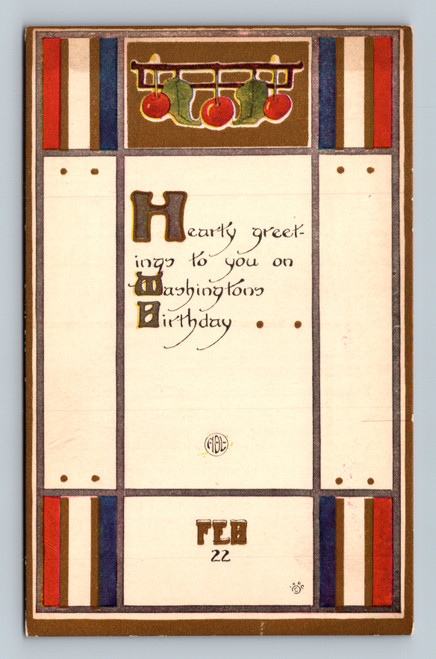 Hearty greet-
ings to you on
Washingtons
Birthday . .
FEB
22